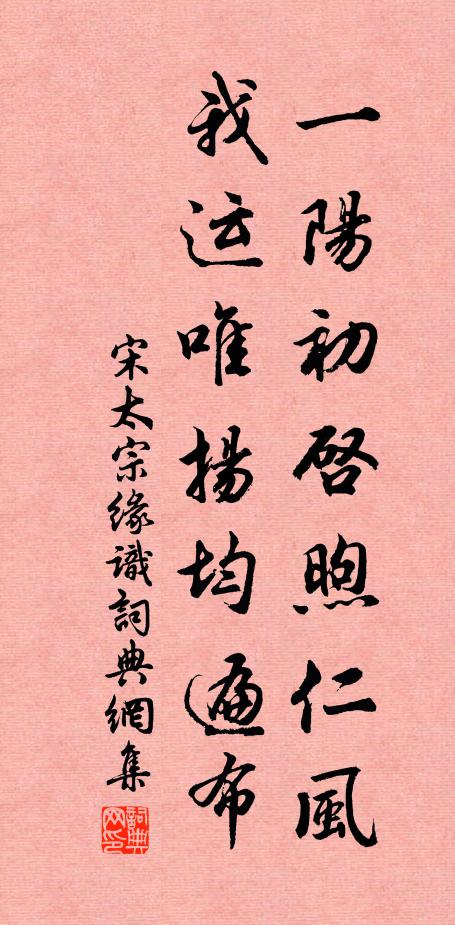 一陽初啓煦仁風
我运唯揚均遍布
宋太宗緣識詞典網集
詞典网印